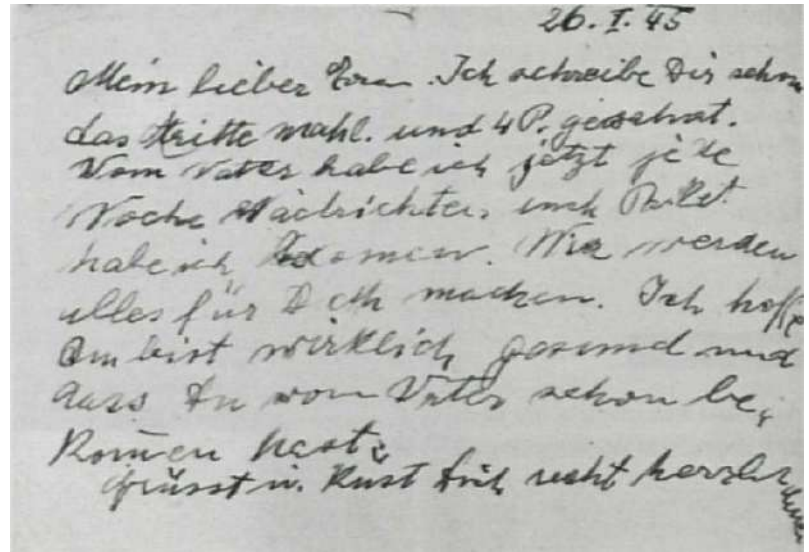 26.I.45
Mein lieber Ich schreibe Dir schon
das dritte mahl. und 4 P. geschrat.
Vom Vater habe ich jetzt jede
Woche Nachrichten, auch Paket
habe ich Wir werden
alles für Dich machen. Ich hoffe
Du bist wirklich gesund und
dass Du vom Vater schon be,
komen hast.
Grüsst u. Küst Dich recht herzlich